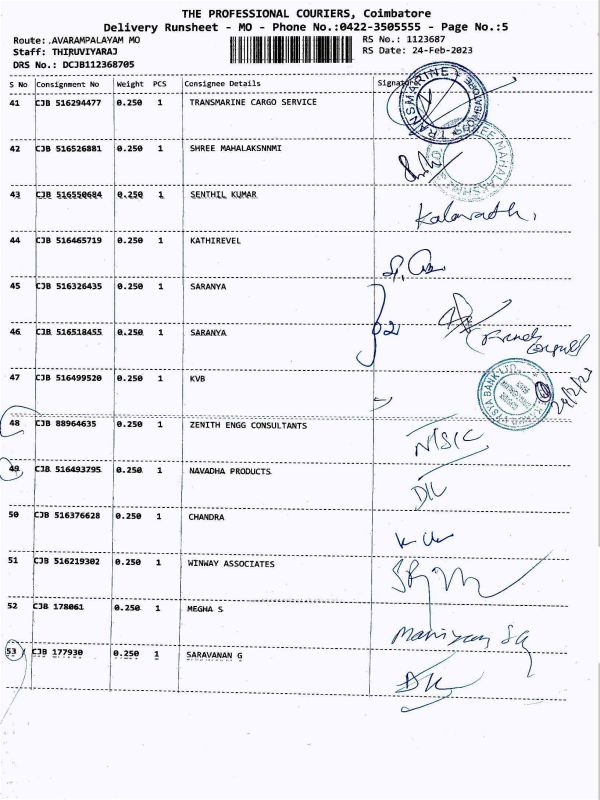 THE PROFESSIONAL COURIERS, Coimbatore
Delivery Runsheet - MO - Phone No.:0422-3505555 - Page No.:5
Route:.AVARAMPALAYAM MO RS No.: 1123687
Staff: THIRUVIYARAJ RS Date: 24-Feb-2023
DRS No.: DCJB112368705
S No Consignment No Weight PCS Consignee Details Signature
41 CJB 516294477 0.250 1 TRANSMARINE CARGO SERVICE
TRANSMARINE
42 CJB 516526881 0.250 1 SHREE MAHALAKSNNMI
43 CJB 516550684 0.250 1 SENTHIL KUMAR
44 CJB 516465719 0.250 1 KATHIREVEL
45 CJB 516326435 0.250 1 SARANYA
46 CJB 516518455 0.250 1 SARANYA
47 CJB 516499520 0.250 1 KVB
24/2/23
48 CJB 88964635 0.250 1 ZENITH ENGG CONSULTANTS
49 CJB 516493795 0.250 1 NAVADHA PRODUCTS
50 CJB 516376628 0.250 1 CHANDRA
51 CJB 516219302 0.250 1 WINWAY ASSOCIATES
52 CJB 178061 0.250 1 MEGHA S
53 CJB 177930 0.250 1 SARAVANAN G